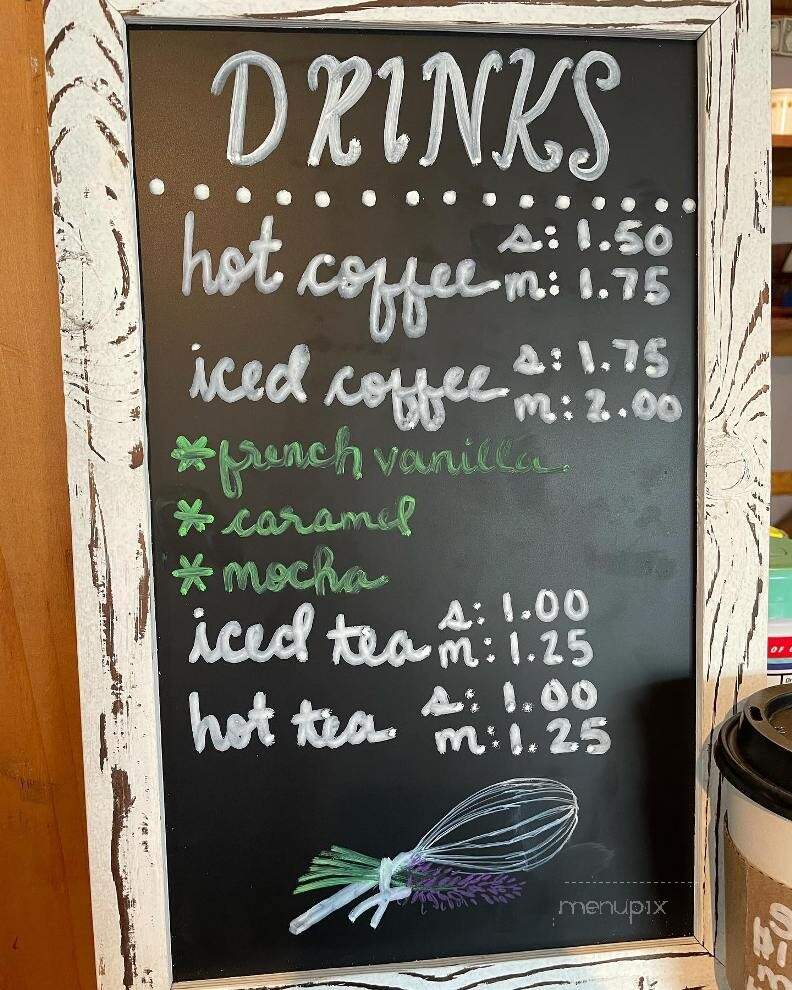 DRINKS
hot coffee s: 1.50
m: 1.75
iced coffee s: 1.75
m: 2.00
*french vanilla
*caramel
*mocha
iced tea s: 1.00
m: 1.25
hot tea s: 1.00
m: 1.25
menupix